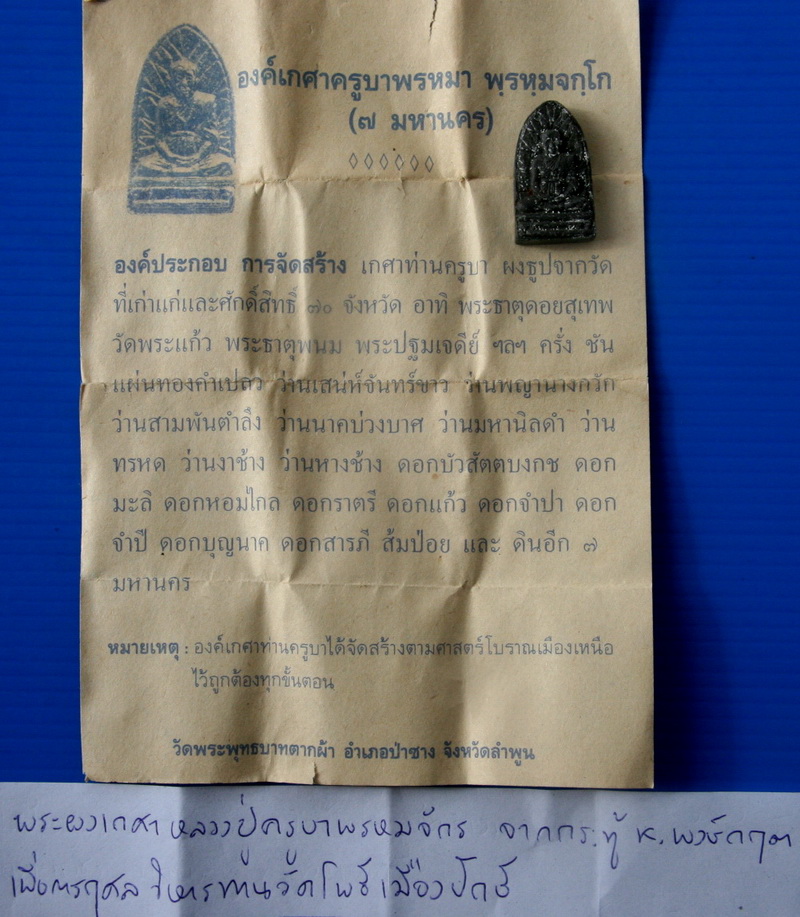 องค์เกศาครูบาพรหมา พฺรหฺมจกฺโก
(๗ มหานคร)
องค์ประกอบ การจัดสร้าง เกศาท่านครูบา ผงธูปจากวัด
ที่เก่าแก่และศักดิ์สิทธิ์ ๗๐ จังหวัด อาทิ พระธาตุดอยสุเทพ
วัดพระแก้ว พระธาตุพนม พระปฐมเจดีย์ ฯลฯ ครั่ง ชัน
แผ่นทองคำเปลว ว่านเสน่ห์จันทร์ขาว ว่านพญานางกวัก
ว่านสามพันตำลึง ว่านนาคบ่วงบาศ ว่านมหานิลดำ ว่าน
ทรหด ว่านงาช้าง ว่านหางช้าง ดอกบัวสัตตบงกช ดอก
มะลิ ดอกหอมไกล ดอกราตรี ดอกแก้ว ดอกจำปา ดอก
จำปี ดอกบุญนาค ดอกสารภี ส้มป่อย และ ดินอีก ๗
มหานคร
หมายเหตุ : องค์เกศาท่านครูบาได้จัดสร้างตามศาสตร์โบราณเมืองเหนือ
ไว้ถูกต้องทุกขั้นตอน
วัดพระพุทธบาทตากผ้า อำเภอป่าซาง จังหวัดลำพูน
พระผงเกศา หลวงปู่ครูบาพรหมจักร จากกระทู้ พงษ์
เพื่อการกุศล วิหารทานวัดโพธิ์เมืองปักษ์